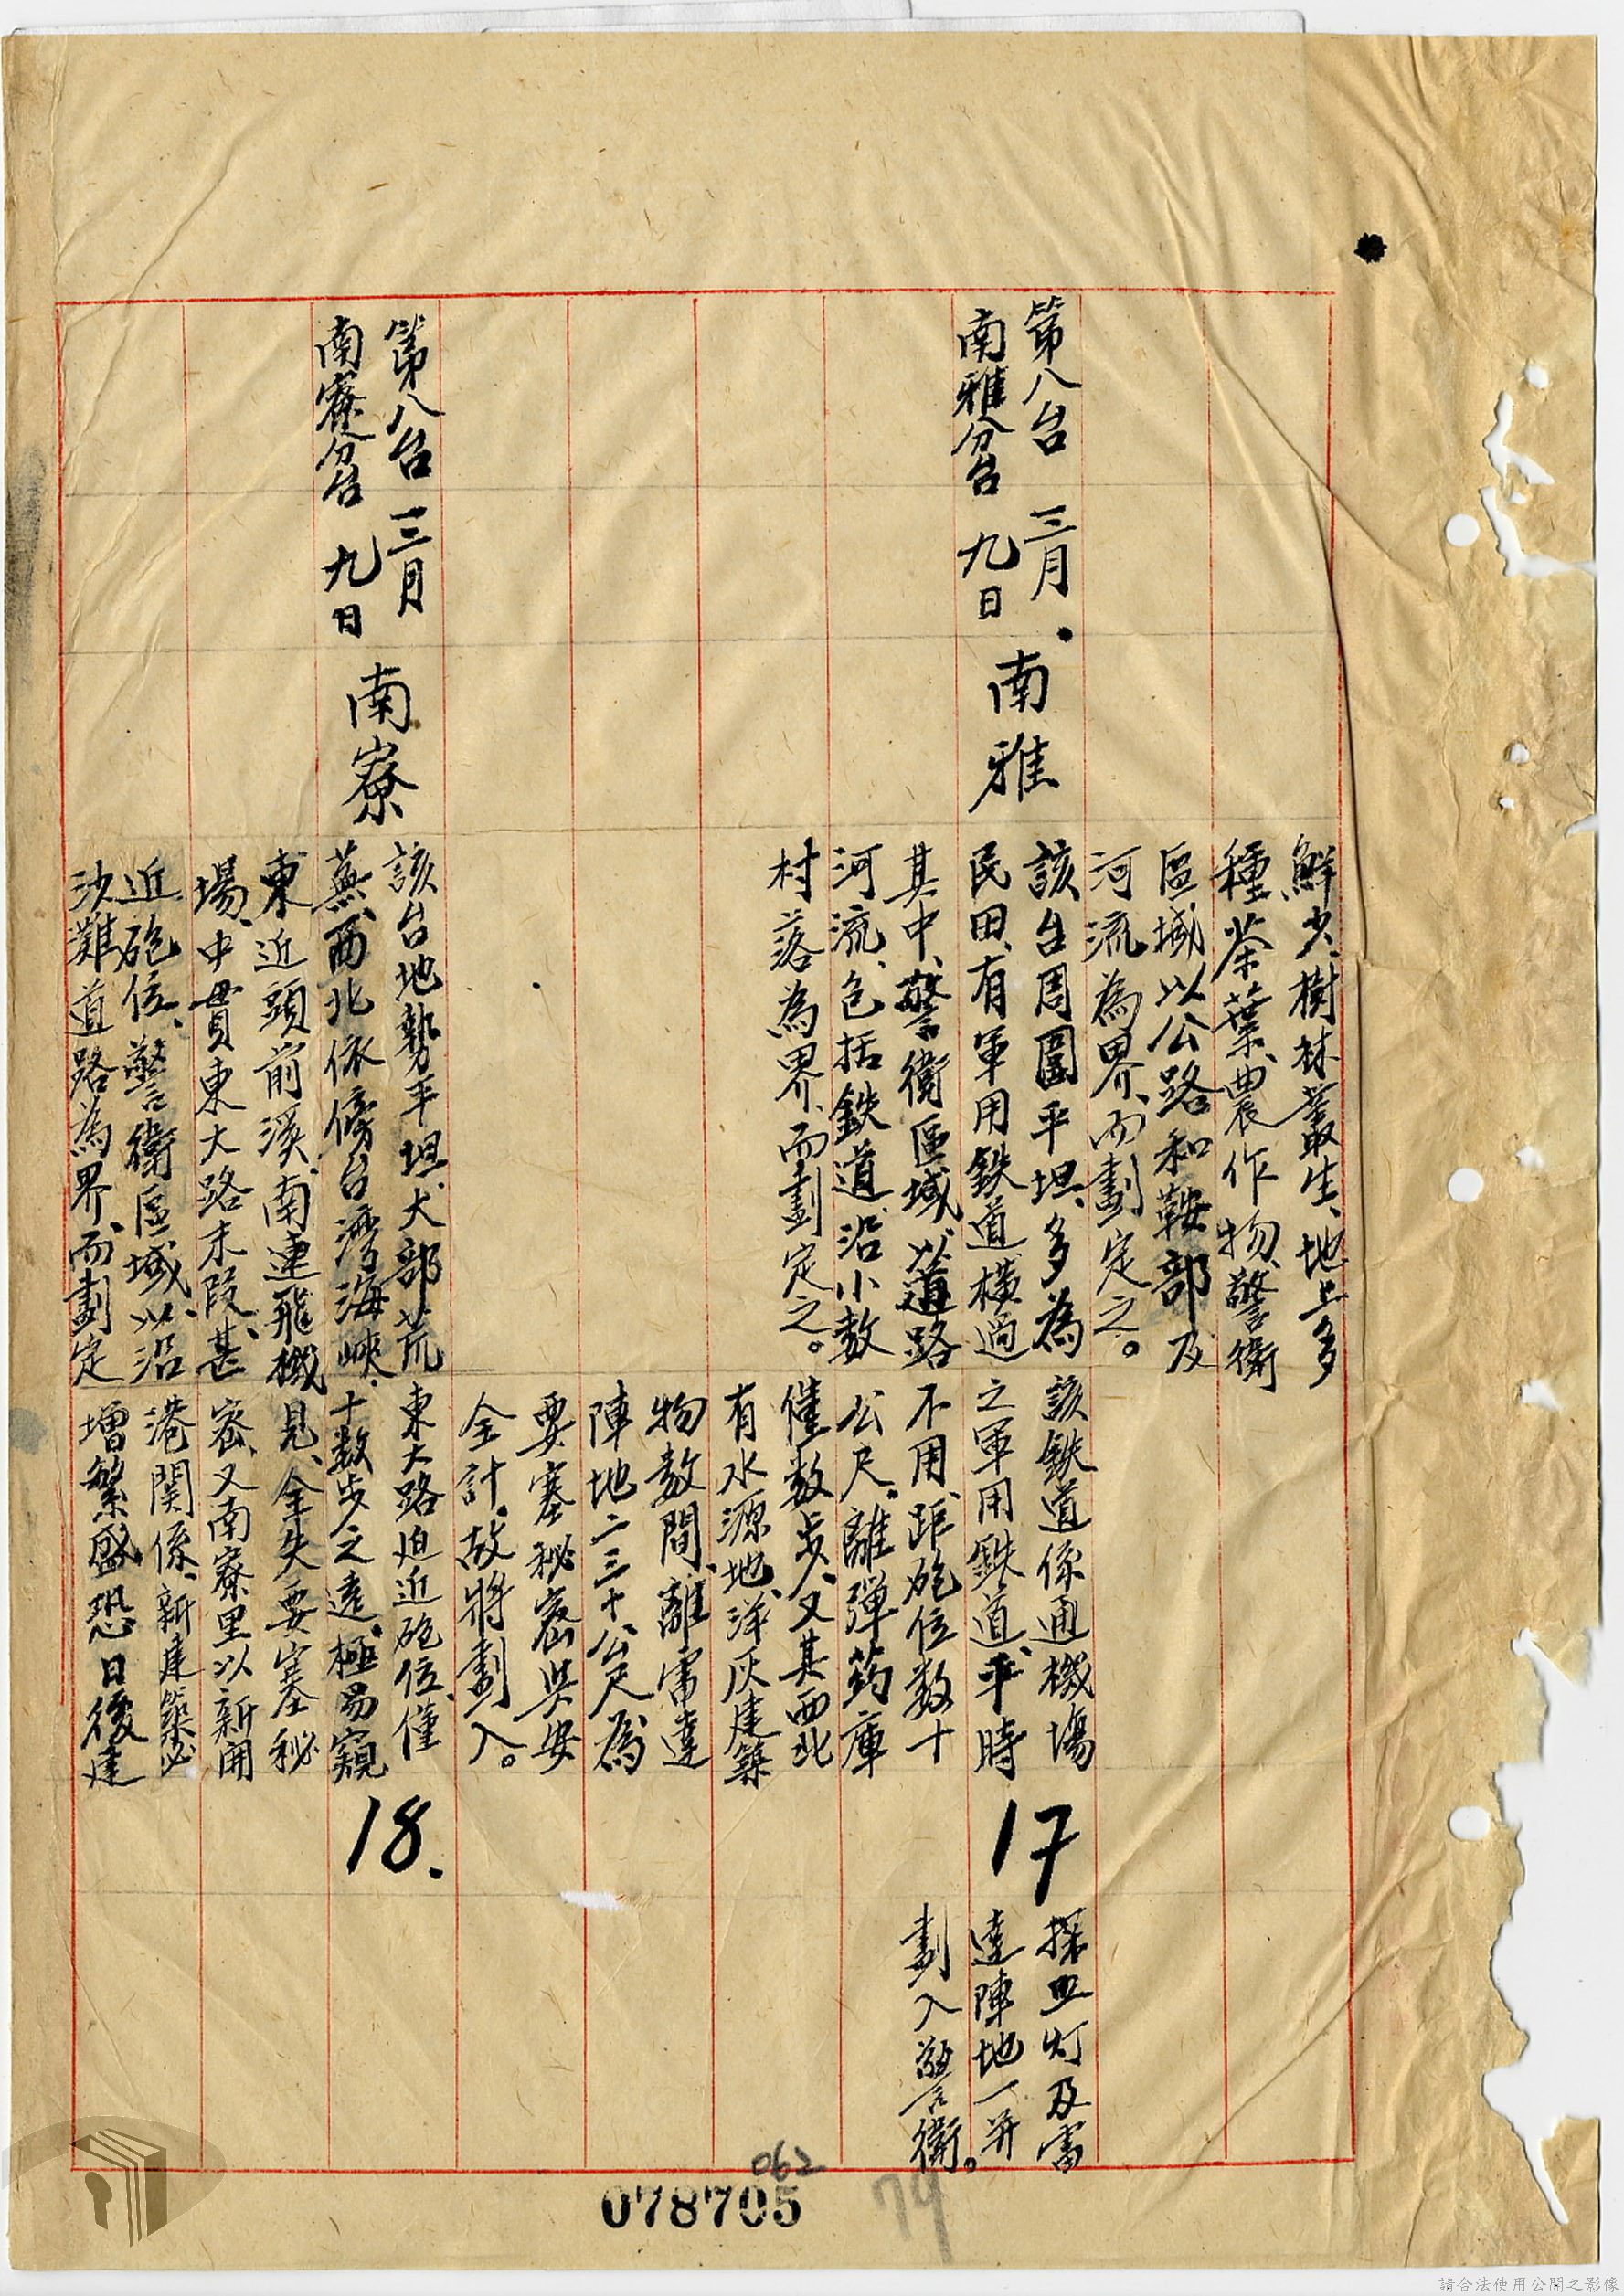 鮮少樹林叢生、地上多
種茶葉、農作物、警衛
區域以公路和鞍部及
河流為界、而劃定之。
第八台
南雅分台
三月
九日
南雅
該台周圍平坦、多為
民田、有軍用鉄道橫過
其中、警衛區域、以道路
河流、包括鉄道、沿小数
村落為界、而劃定之。
該鉄道係通機場
之軍用鉄道、平時
不用、距砲位数十
公尺。離彈药庫
僅数步、又其西北
有水源地、洋灰建築
物数間、離雷達
陣地二三十公尺、為
要塞秘密與安
全計。故將劃入。
17
探照灯及雷
達陣地一并
劃入警衛。
第八台
南寮分台
三月
九日
南寮
該台地勢平坦、大部荒
蕪、西北依傍台灣海峽、
東近頭前溪、南連飛機
場、中貫東大路末段、甚
近砲位、警衛區域、以沿
沙難道路為界、而劃定
東大路迫近砲位、僅
十数步之遠、極易窺
見、全失要塞秘
密、又南寮里以新開
港関係、新建築必
增繁盛恐日後建
18.
062
078705
79
請合法使用公開之影像